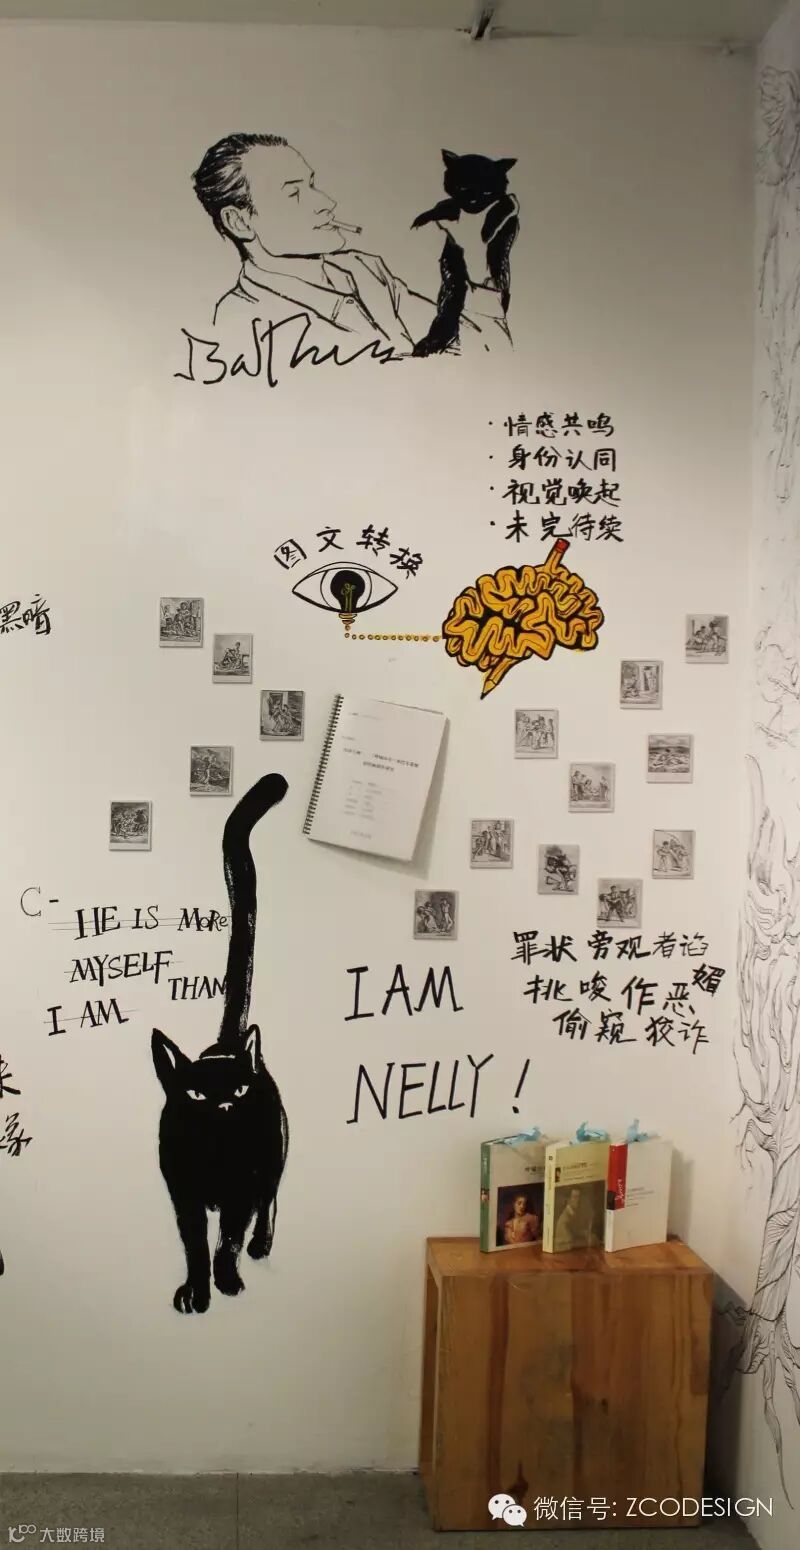 Balthus
· 情感共鸣
· 身份认同
· 视觉唤起
· 未完待续
图文转换
黑暗
C-
HE IS MORE
MYSELF THAN
I AM
I AM
NELLY!
罪状 旁观者谄媚
挑唆 作恶
偷窥 狡诈
微信号: ZCODESIGN
大数跨境